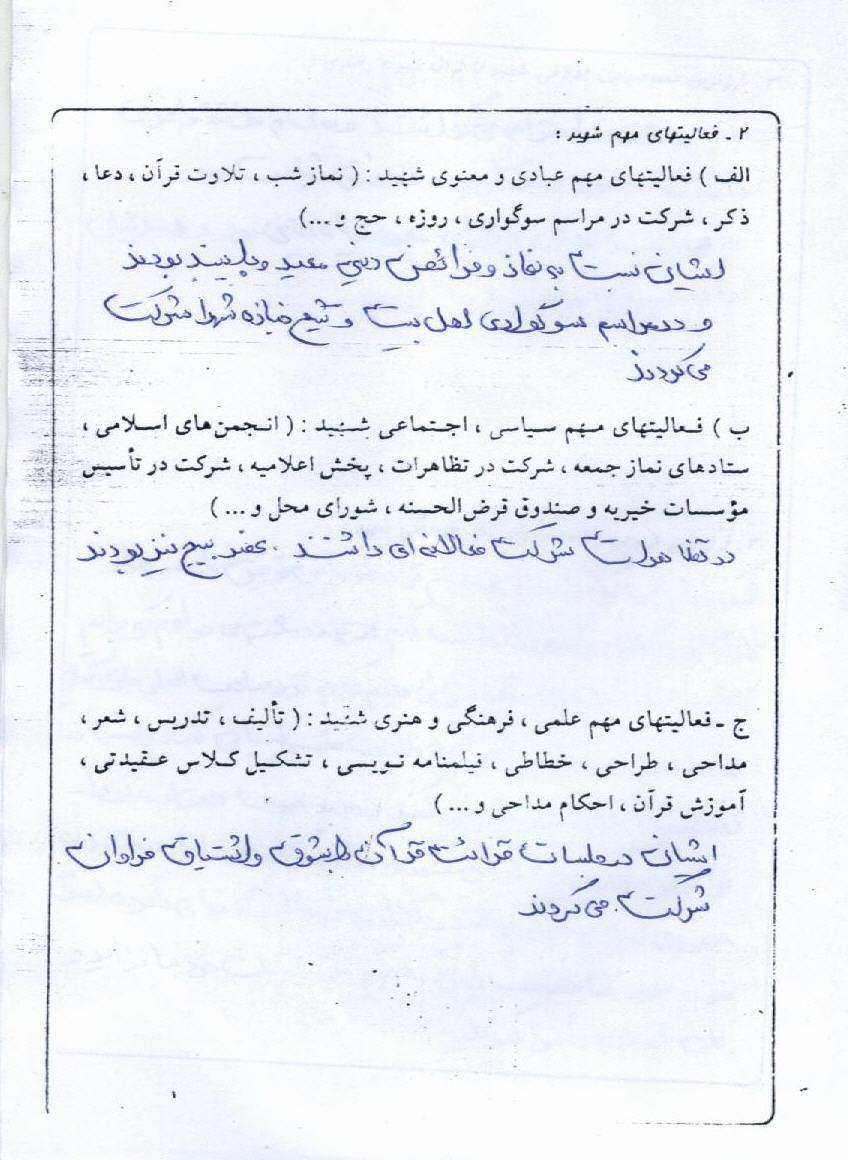 ۲ ـ فعالیتهای مهم شهید :
الف ) فعالیتهای مهم عبادی و معنوی شهید : ( نماز شب ، تلاوت قرآن ، دعا ،
ذکر ، شرکت در مراسم سوگواری ، روزه ، حج و ...)
ایشان نسبت به نماز و فرائض دینی مقید و پایبند بودند
و در مراسم سوگواری اهل بیت و تشیع جنازه شهدا شرکت
می کردند
ب ) فعالیتهای مهم سیاسی ، اجتماعی شهید : ( انجمن‌های اسلامی ،
ستادهای نماز جمعه ، شرکت در تظاهرات ، پخش اعلامیه ، شرکت در تأسیس
مؤسسات خیریه و صندوق قرض‌الحسنه ، شورای محل و ... )
در تظاهرات شرکت فعالانه ای داشتند . عضو بسیج نیز بودند
ج ـ فعالیتهای مهم علمی ، فرهنگی و هنری شهید : ( تألیف ، تدریس ، شعر ،
مداحی ، طراحی ، خطاطی ، فیلمنامه نویسی ، تشکیل کلاس عقیدتی ،
آموزش قرآن ، احکام مداحی و ... )
ایشان در جلسات قرائت قرآن با شوق و اشتیاق فراوان
شرکت می کردند